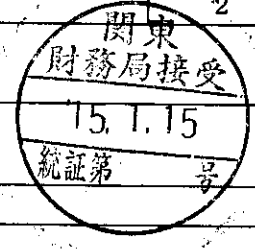 2
関東
財務局接受
15.1.15
統証第 号